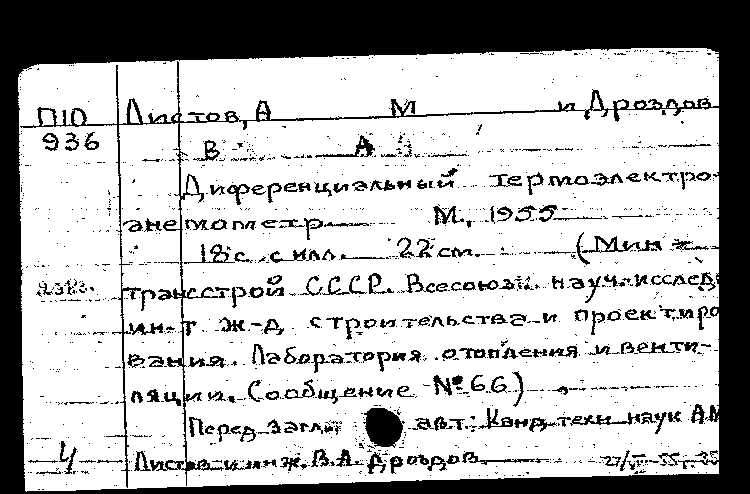 П10 Листов, А М и Дроздов
936 В А
Диференциальный термоэлектро-
анемометр М., 1955
18 с. с илл. 22 см. (Мин-
трансстрой СССР. Всесоюзн. науч.-исслед.
ин-т ж-д. строительства и проектиро
вания. Лаборатория отопления и венти-
ляции. Сообщение № 66)
Перед загл. авт.: Канд. техн. наук А.М
Ч Листов и инж. В.А. Дроздов.